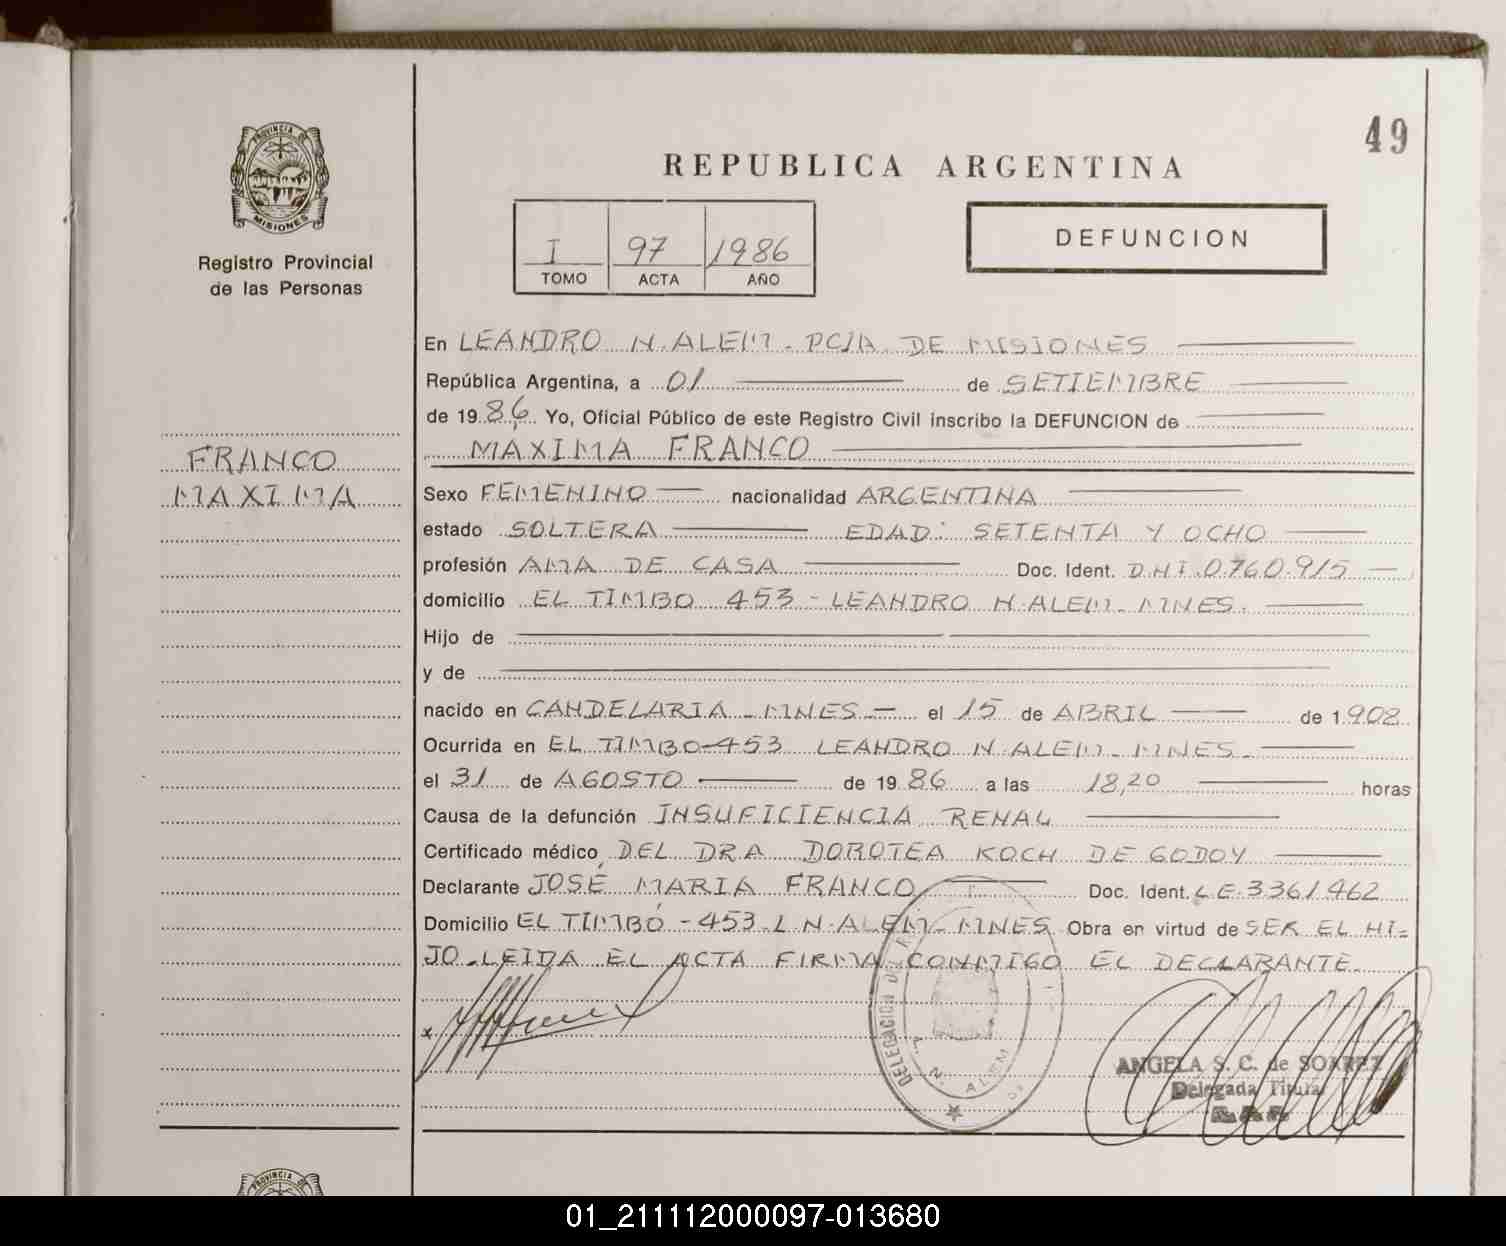 49
PROVINCIA DE
MISIONES
Registro Provincial
de las Personas
REPUBLICA ARGENTINA
I 97 1986
TOMO ACTA AÑO
DEFUNCION
FRANCO
MAXIMA
En LEANDRO N. ALEM - PCIA DE MISIONES
República Argentina, a 01 de SETIEMBRE
de 1986. Yo, Oficial Público de este Registro Civil inscribo la DEFUNCION de
MAXIMA FRANCO
Sexo FEMENINO nacionalidad ARGENTINA
estado SOLTERA EDAD: SETENTA Y OCHO
profesión AMA DE CASA Doc. Ident. D.N.I. 0.760.915
domicilio EL TIMBO 453 - LEANDRO N. ALEM - MNES.
Hijo de
y de
nacido en CANDELARIA - MNES - el 15 de ABRIL de 1.908
Ocurrida en EL TIMBO-453 LEANDRO N. ALEM - MNES -
el 31 de AGOSTO de 1986 a las 18,20 horas
Causa de la defunción INSUFICIENCIA RENAL
Certificado médico DEL DRA DOROTEA KOCH DE GODOY
Declarante JOSÉ MARIA FRANCO Doc. Ident. L.E. 3.361.462
Domicilio EL TIMBÓ - 453 - L N. ALEM - MNES Obra en virtud de SER EL HI=
JO - LEIDA EL ACTA FIRMA CONMIGO EL DECLARANTE -
x
DELEGACION DEL
L. N. ALEM
ANGELA S. C. de SOAREZ
Delegada Titular
PROVINCIA DE
01_211112000097-013680